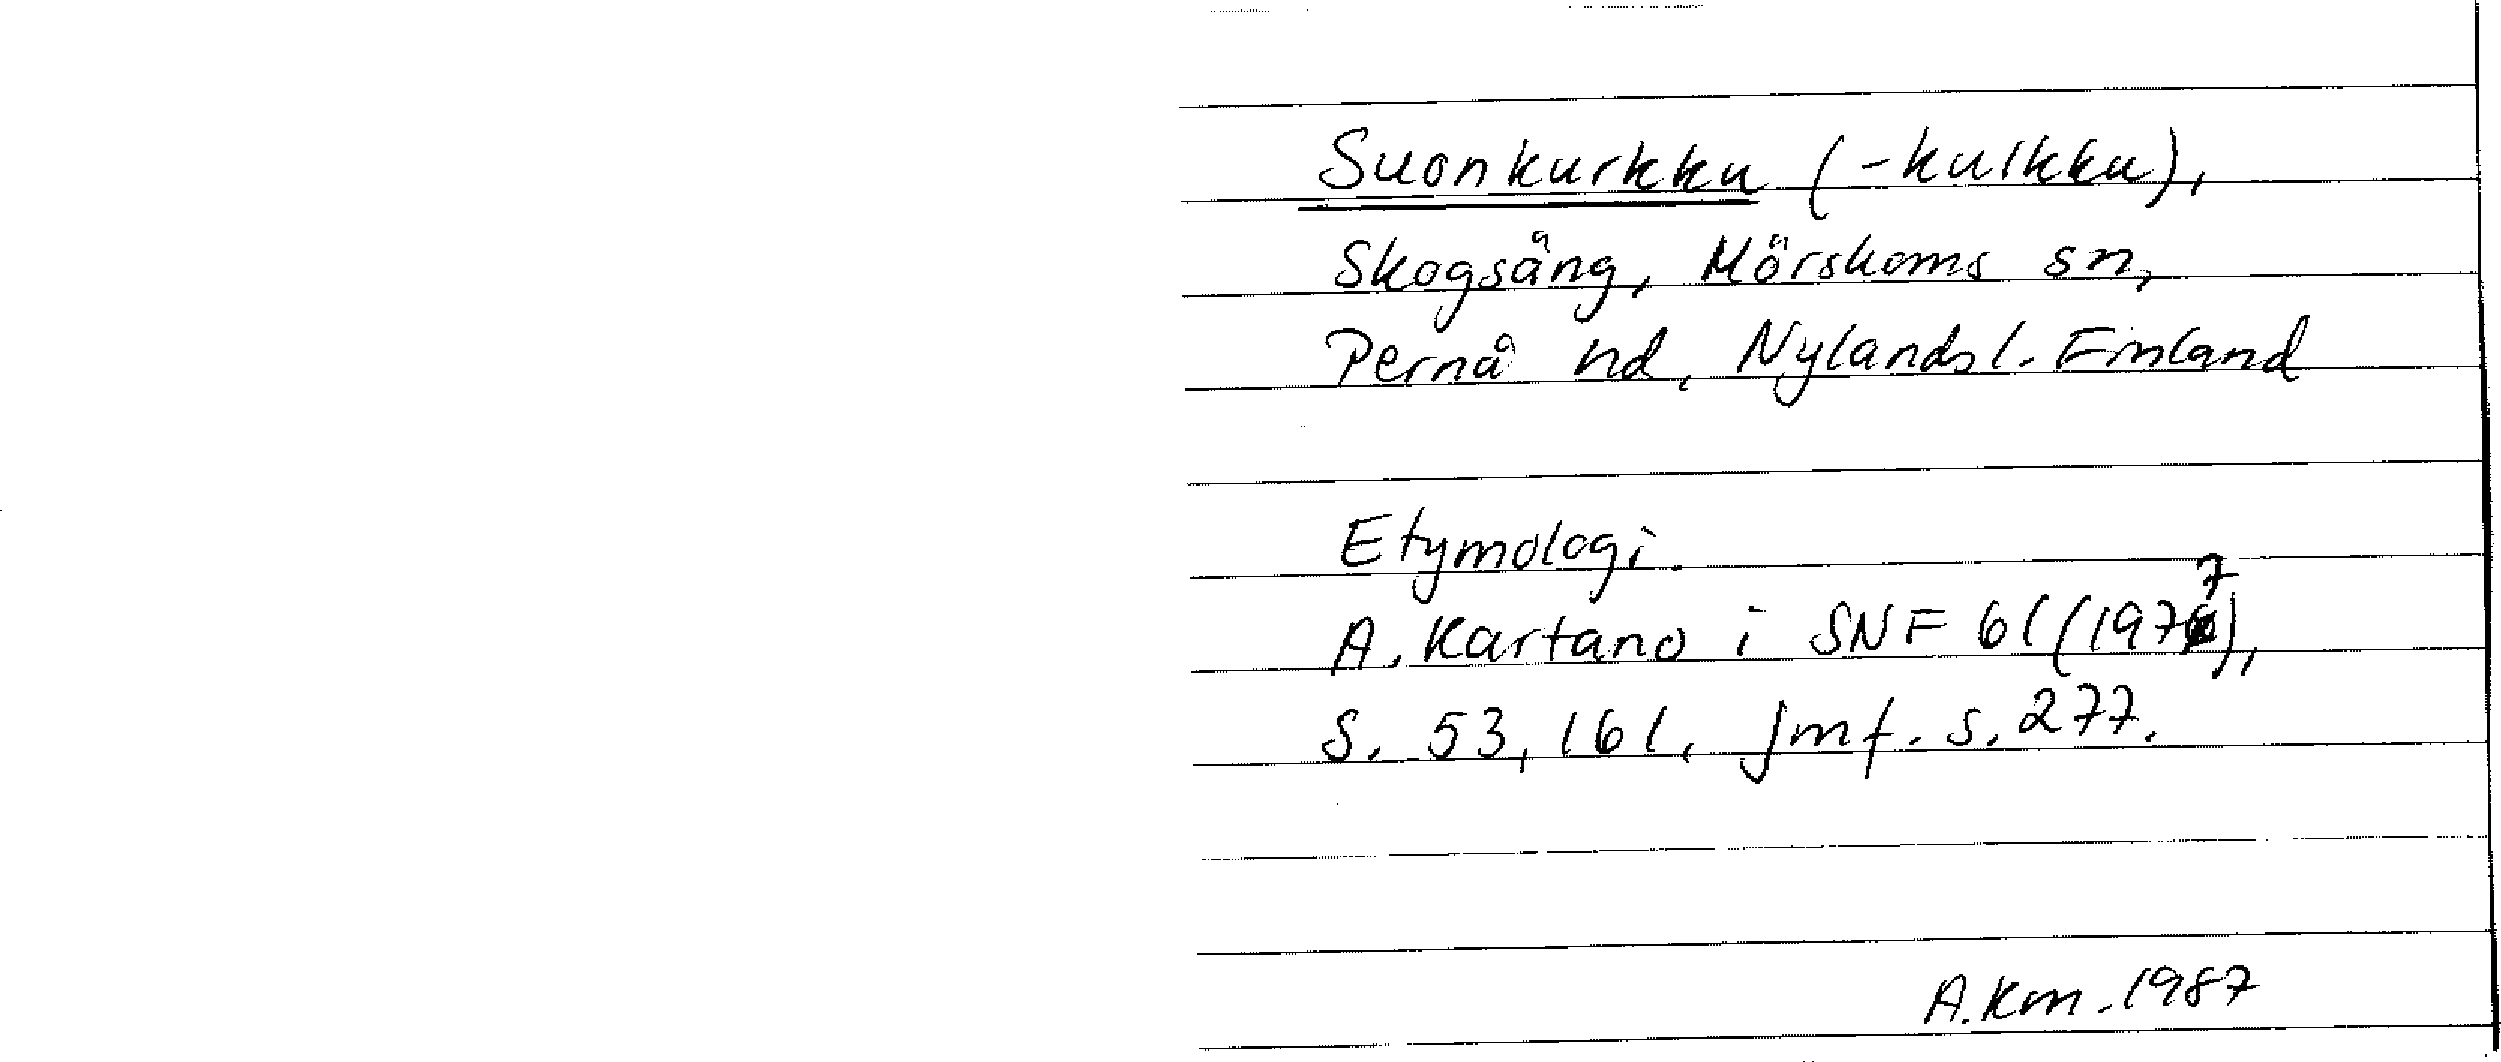 Suonkurkku (-kulkku),
Skogsäng, Mörskoms sn,
Pernå hd, Nylands l. Finland
Etymologi.
A. Kartano i SNF 61 (1977),
S. 53, 161, jmf. s. 277.
A.Km. 1987